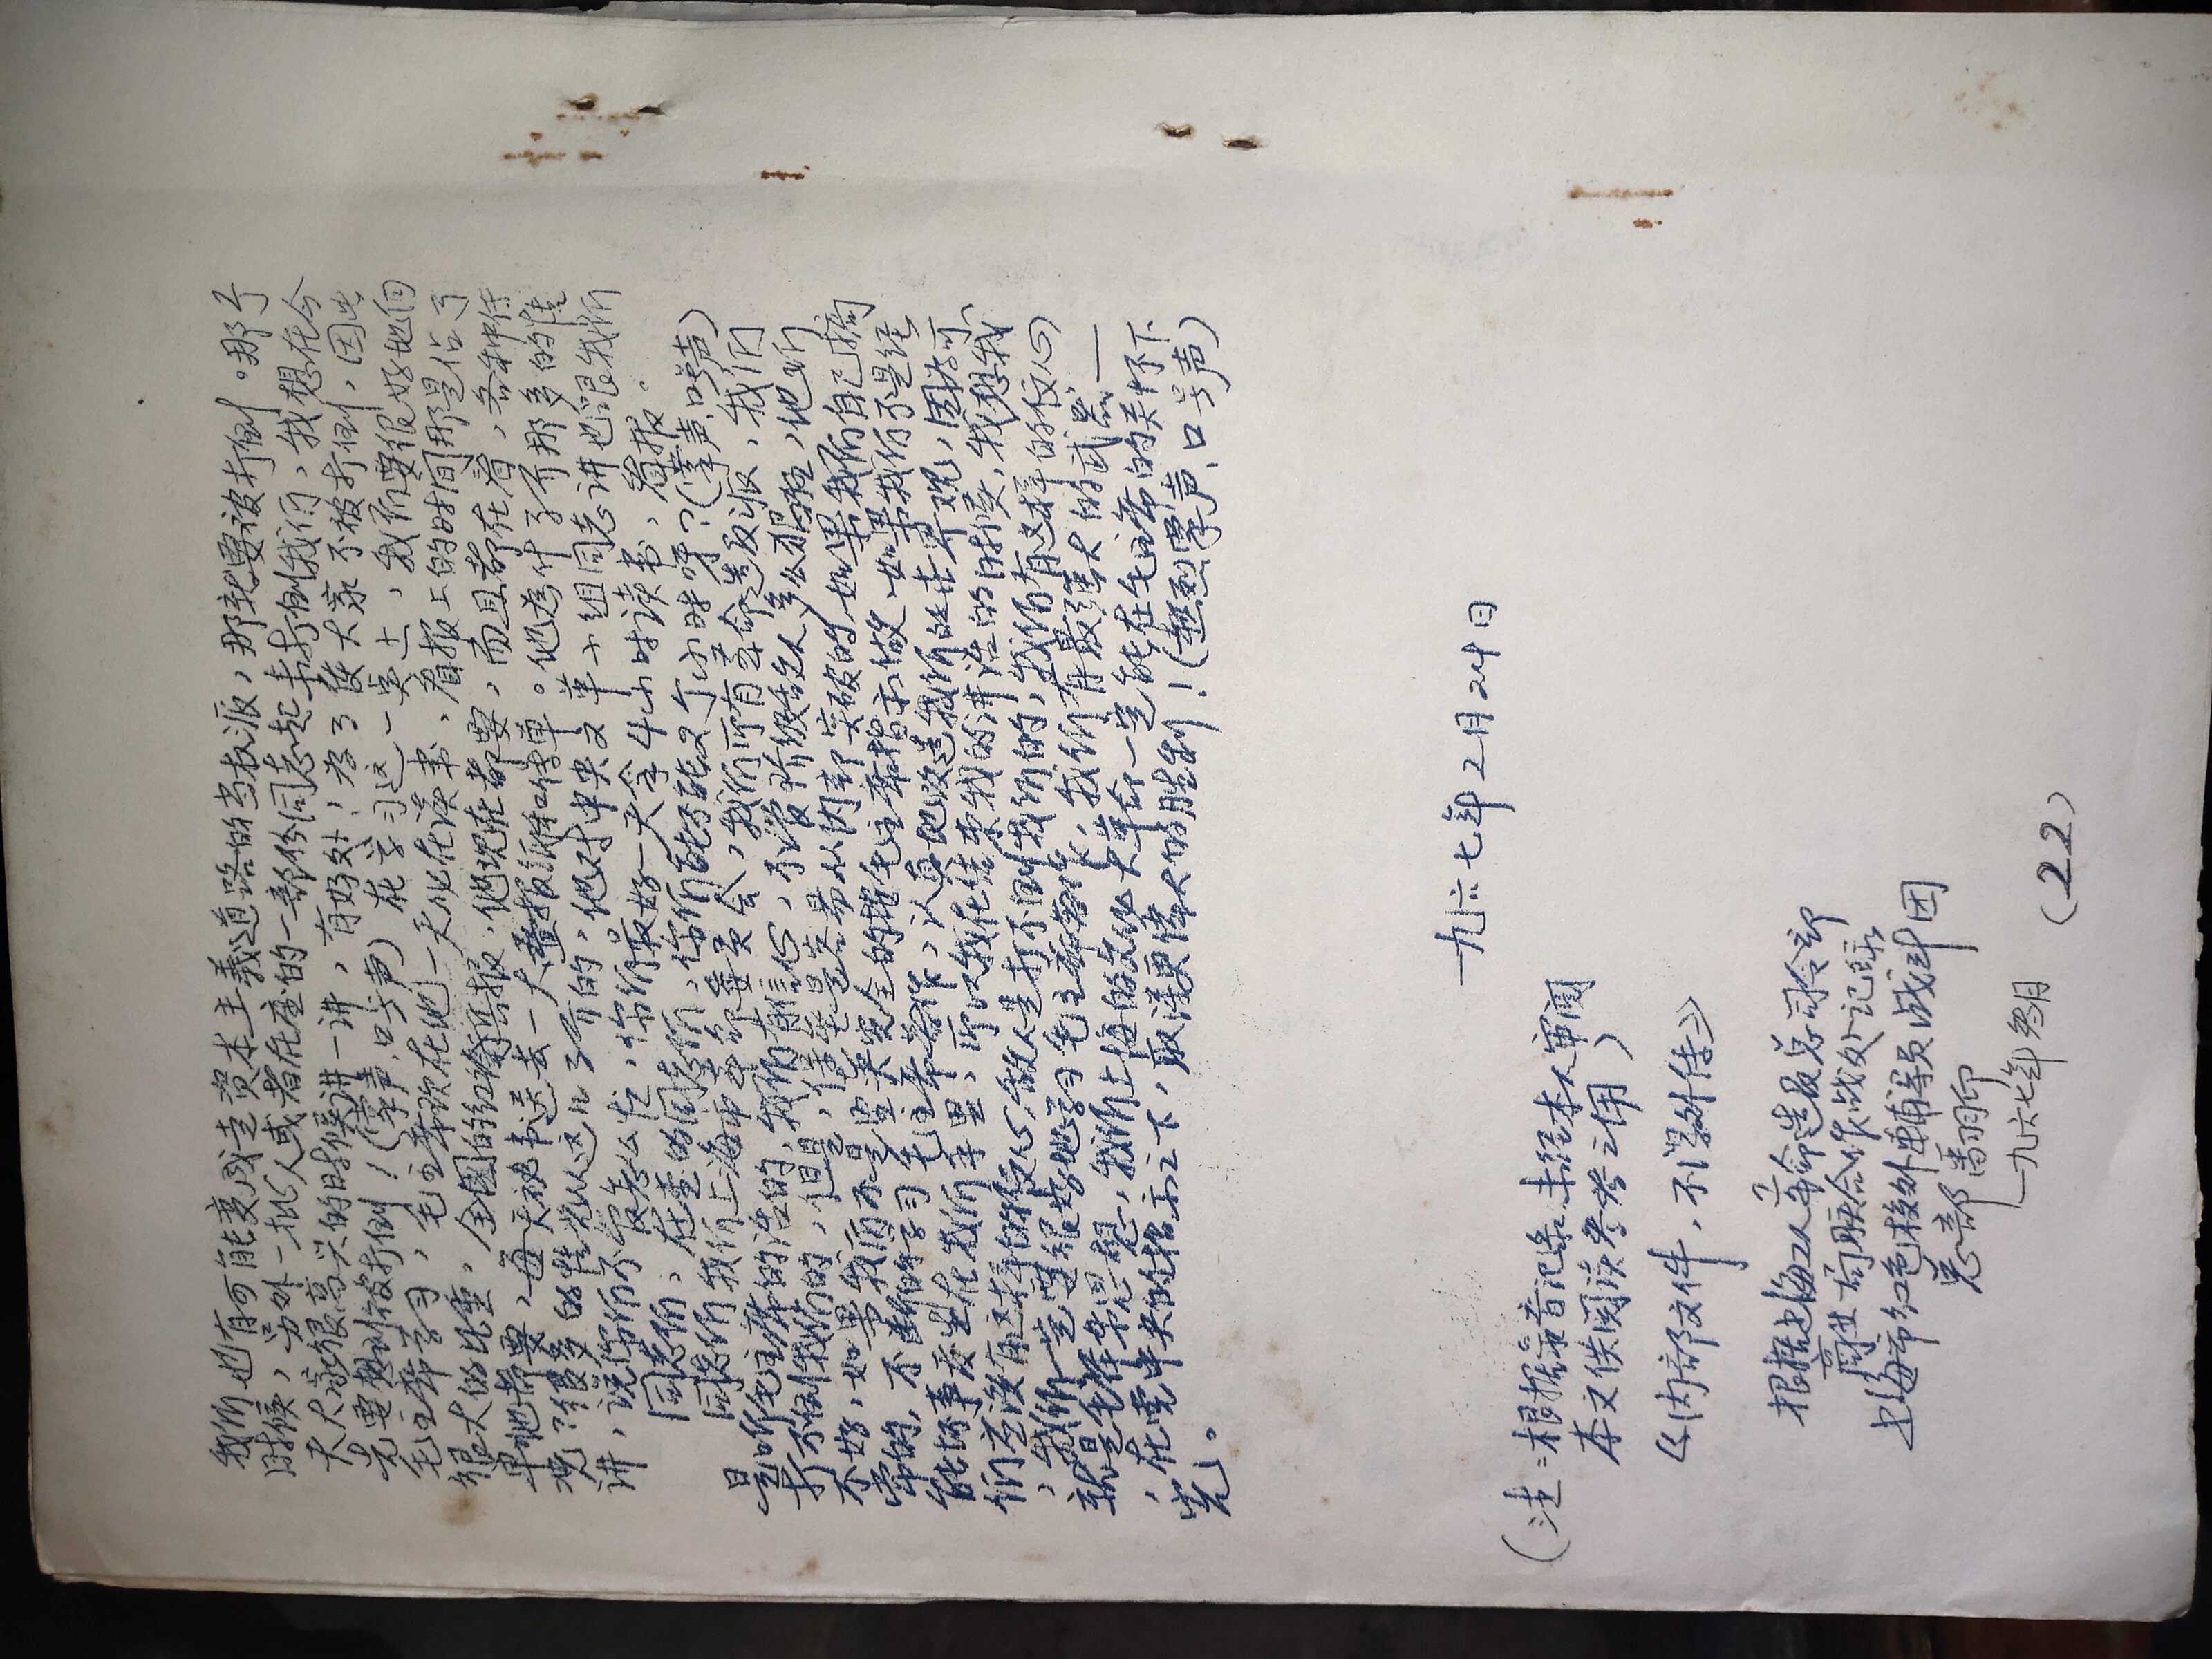 我们也有可能变成走资本主義道路的当权派，那就要被打倒。那个
时候，另外一批人或者在座的一部份同志起来打倒我们，我想在今
天大家很高兴的时候讲一讲，有好处！为了使大家不被打倒，因此
先要想到被打倒！（掌声、口号声）在学习这一点上，我们要很好地向
毛主席学习，毛主席现在他一天必在读书、看报上的时间那是佔了
很大的比重，全国的红衛兵报，他现在都要，而且都在看，各种传
单他都要，每天秘书送去一大叠报纸和传单。他为什了介那多的情
况？很多的情况从这儿了介的，他对中央文革小组同志讲也跟我们
讲，说你们不管怎么忙，你们最好一天拿4小时读书、看报。
同志们，在座的同志们，你们能不能2个小时呀？（掌声、口号声）
同志们我们上海市革命委员会，我们所有革命造反派，我们
是听毛主席的话的，我们有信心，不管阶级敌人多么猖狂，他们
打不倒我们的，但是，保垒是容易从内部突破的，如果我们自己搞
不好，如果我们不是坚决完全的按毛主席指示做、如果我们不是经
常的，不断的学习毛主席著作，认真地改造我们的世界观，因为可
能坏事发生在我们手里，所以我在结束我的讲话的时候，我想我
们应该有这样的信心，敌人是打不倒我们的，我们有这样的信心
，我们一定要很好地学习毛主席著作，我们有最强大的武器—
就是毛泽东思想，我们上海的文化大革命一定能在毛主席的关怀下
，在党中央的指示之下，取得更偉大的胜利！（熱烈掌声、口号声）
完。
一九六七年2月24日
（注：根据录音记录、未经本人审阅
本文供阅读参考之用）
《内部文件，不得外传》
根据上海工人革命造反总司令部
商业局联合作战处记录
上海市红色校外輔导员战斗团
总部翻印
一九六七年 月
（22）